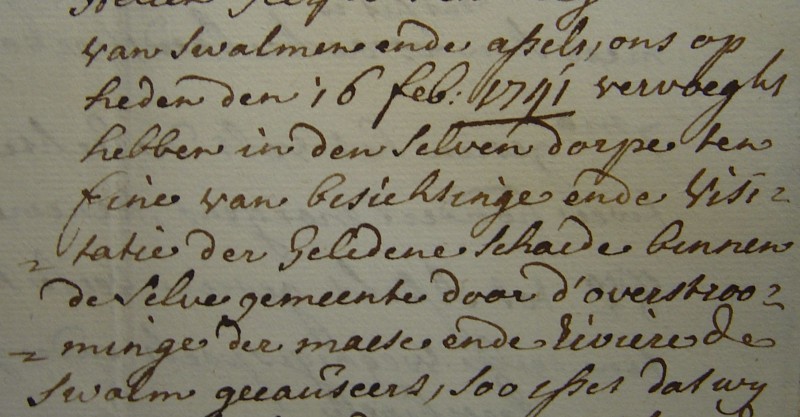 van Swalmen ende assels, ons op
heden den 16 feb: 1741 vervoeght
hebben in den selven dorpe ten
fine van besichtinge ende Visi=
=tatie der Geledene schaede binnen
de selve gemeente door d'overstroo=
=minge der maese ende riviere de
Swalm geeauseert, soo isset dat wy